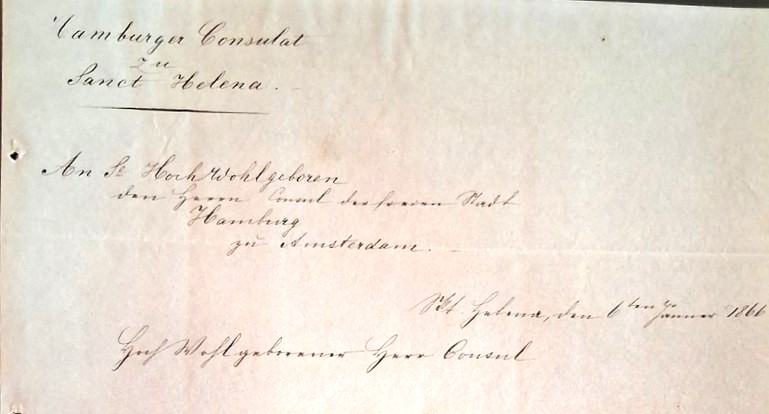 Hamburger Consulat
zu
Sanct Helena.
An Sr HochWohlgeboren
den Herrn Consul der freien Stadt
Hamburg
zu Amsterdam.
Skt Helena, den 6ten Jänner 1866
Hoch Wohlgeborener Herr Consul